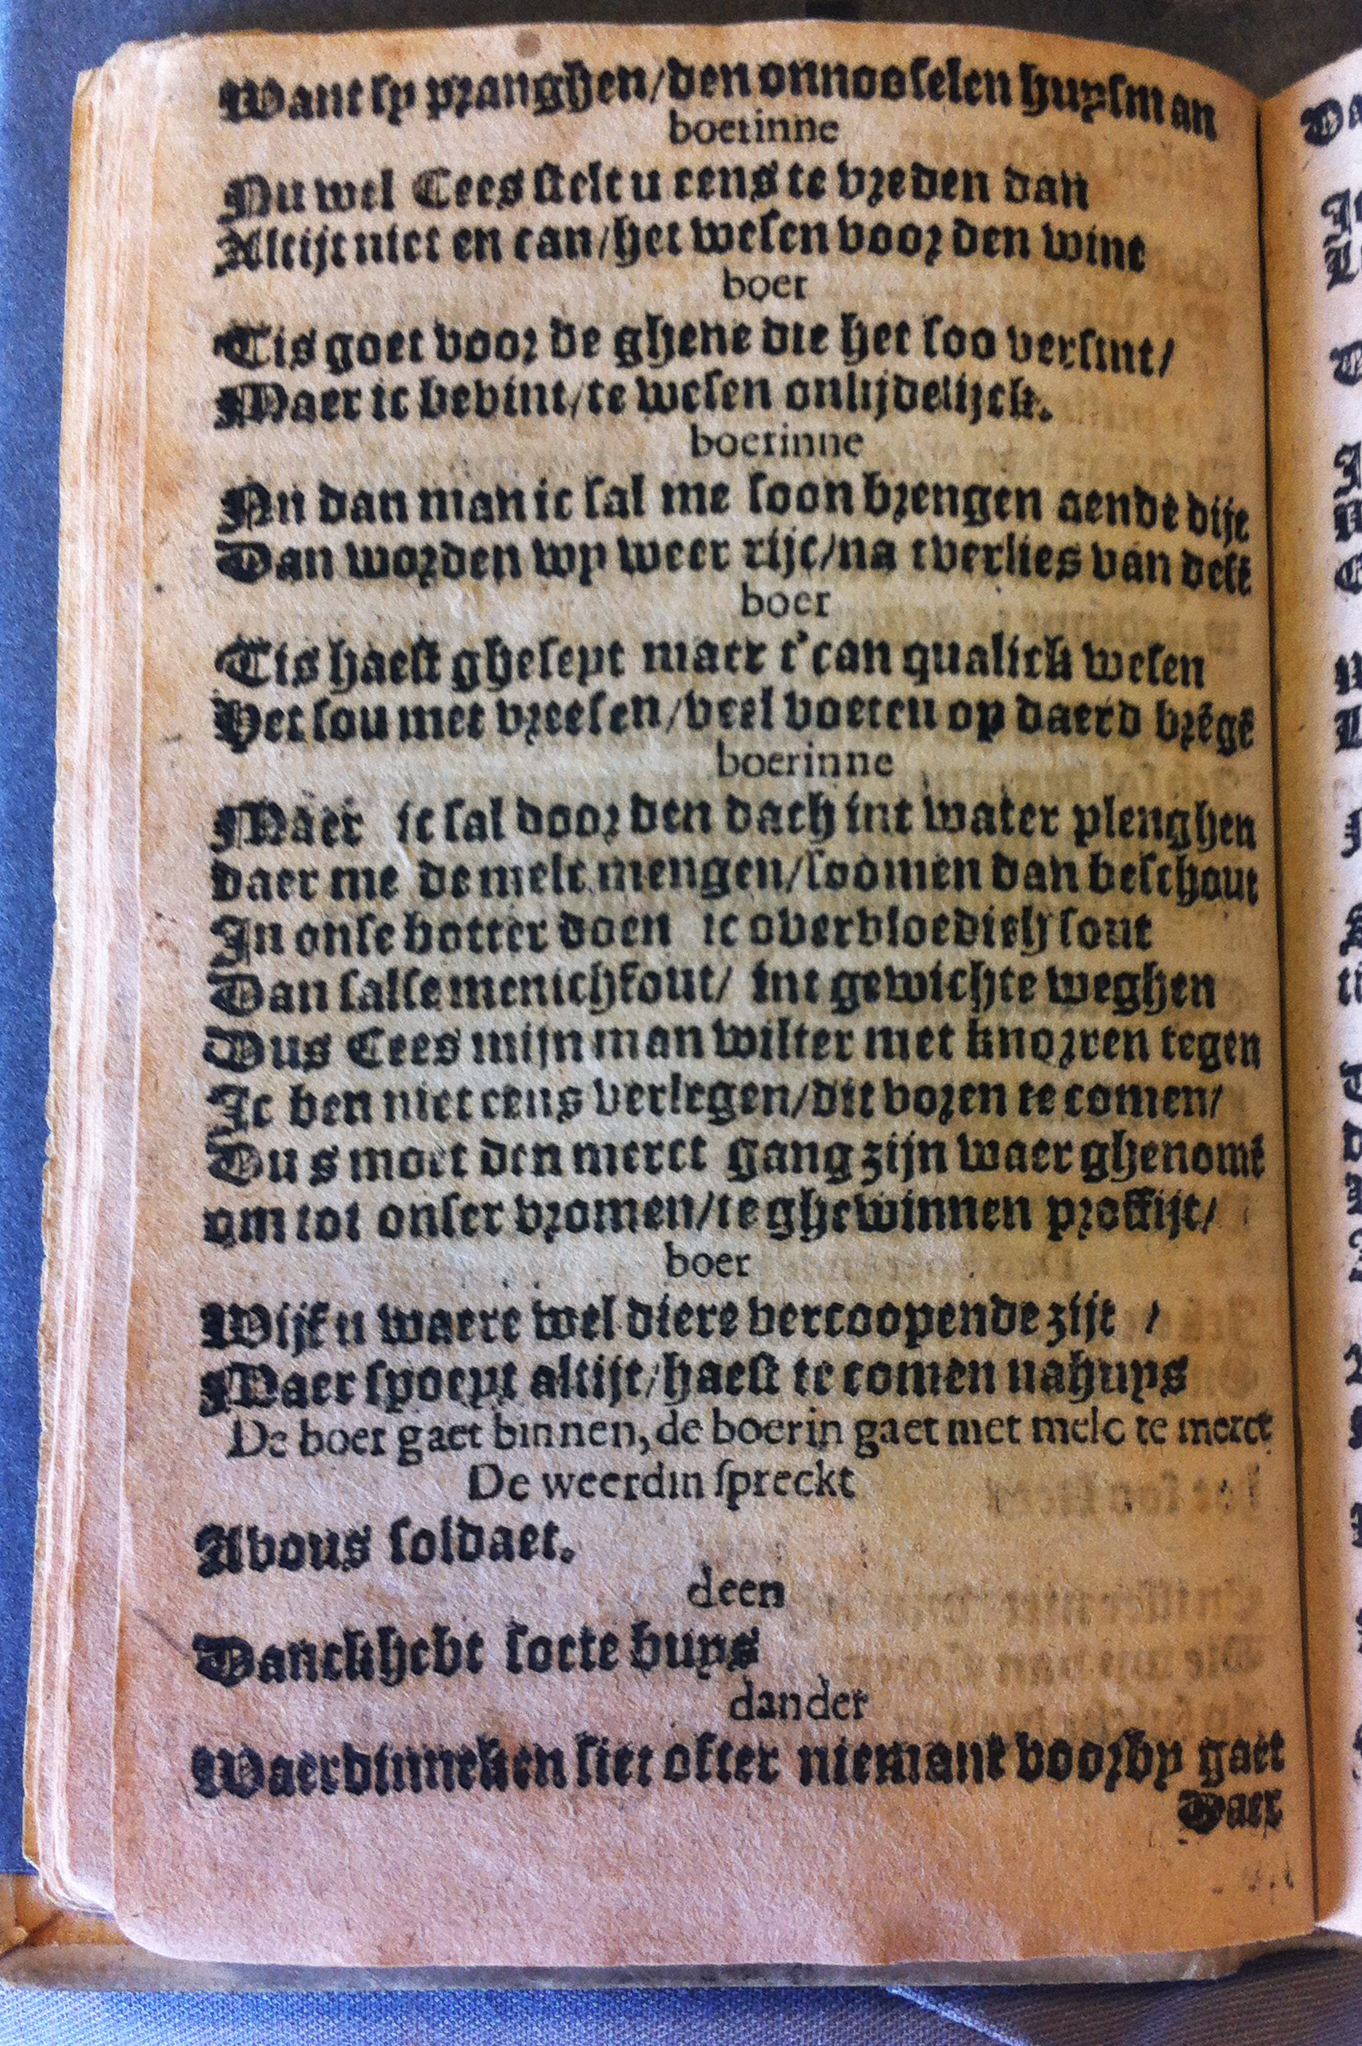 Want sy pranghen/den onnooselen huysman
boerinne
Nu wel Cees stelt u eens te vreden dan
Altijt niet en can/het wesen voor den wint
boer
Tis goet voor de ghene die het soo versint/
Maer ic bevint/te wesen onlijdelijck.
boerinne
Nu dan man ic sal me soon brengen aendē dijc
Dan worden wy weer rijc/na tverlies van desē
boer
Tis haest gheseyt maer t'can qualick wesen
Het sou met vreesen/veel boeten op daerd brēgē
boerinne
Maer ic sal door den dach int water plenghen
daer me de melc mengen/soomen dan beschout
In onse botter doen ic overvloedich sout
Dan salse menichfout/ int gewichte weghen
Dus Cees mijn man wilter niet knorren tegen
Ic ben niet eens verlegen/dit voren te comen/
Dus moet den merct gang zijn waer ghenomē
om tot onser vromen/te ghewinnen proffijt/
boer
Wijf u waere wel diere vercoopende zijt /
Maer spoeyt altijt/haest te comen nahuys
De boer gaet binnen, de boerin gaet met melc te merct
De weerdin spreckt
Avous soldaet.
deen
Danckhebt soete buys
dander
Waerdinneken siet ofter niemant voorby gaet
Waer
Da